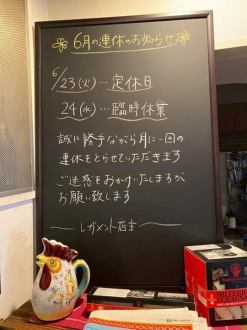 6月の連休のお知らせ
6/23(火)…定休日
24(水)…臨時休業
誠に勝手ながら月に一回の
連休をとらせていただきます
ご迷惑をおかけいたしますが
お願い致します
レガメント店主